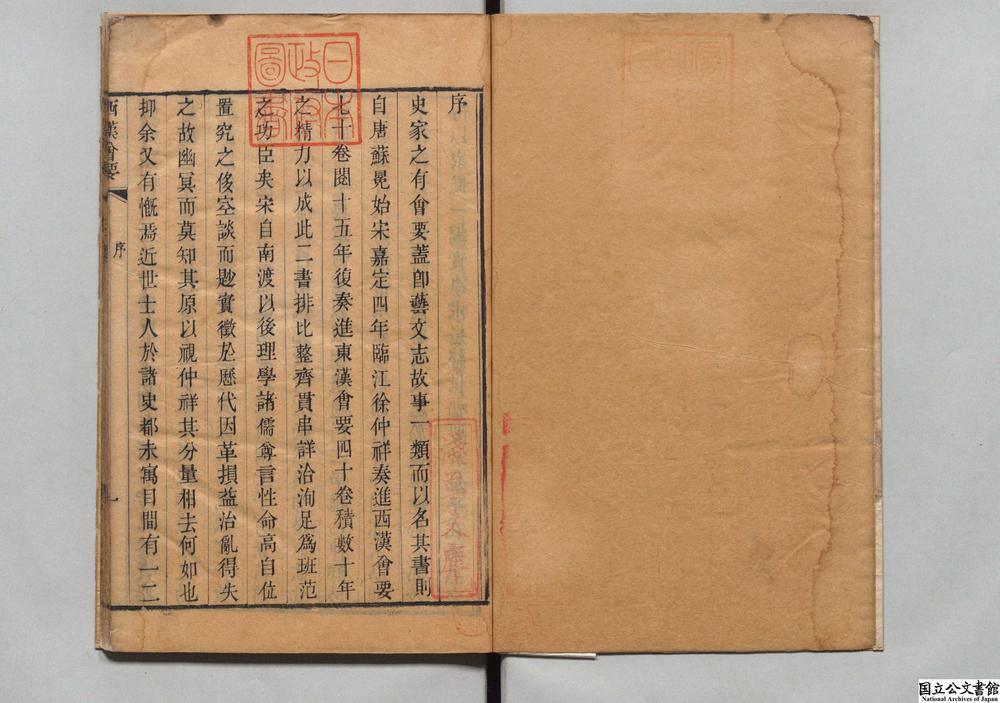 序
史家之有會要蓋卽藝文志故事一類而以名其書則
自唐蘇冕始宋嘉定四年臨江徐仲祥奏進西漢會要
七十卷閱十五年復奏進東漢會要四十卷積數十年
之精力以成此二書排比整齊貫串詳洽洵足爲班范
之功臣矣宋自南渡以後理學諸儒尊言性命高自位
置究之侈空談而尟實徵於歷代因革損益治亂得失
之故幽冥而莫知其原以視仲祥其分量相去何如也
抑余又有慨焉近世士人於諸史都未寓目間有一二
西漢會要
序
一
日本
政府
圖書
国立公文書館
National Archives of Japan